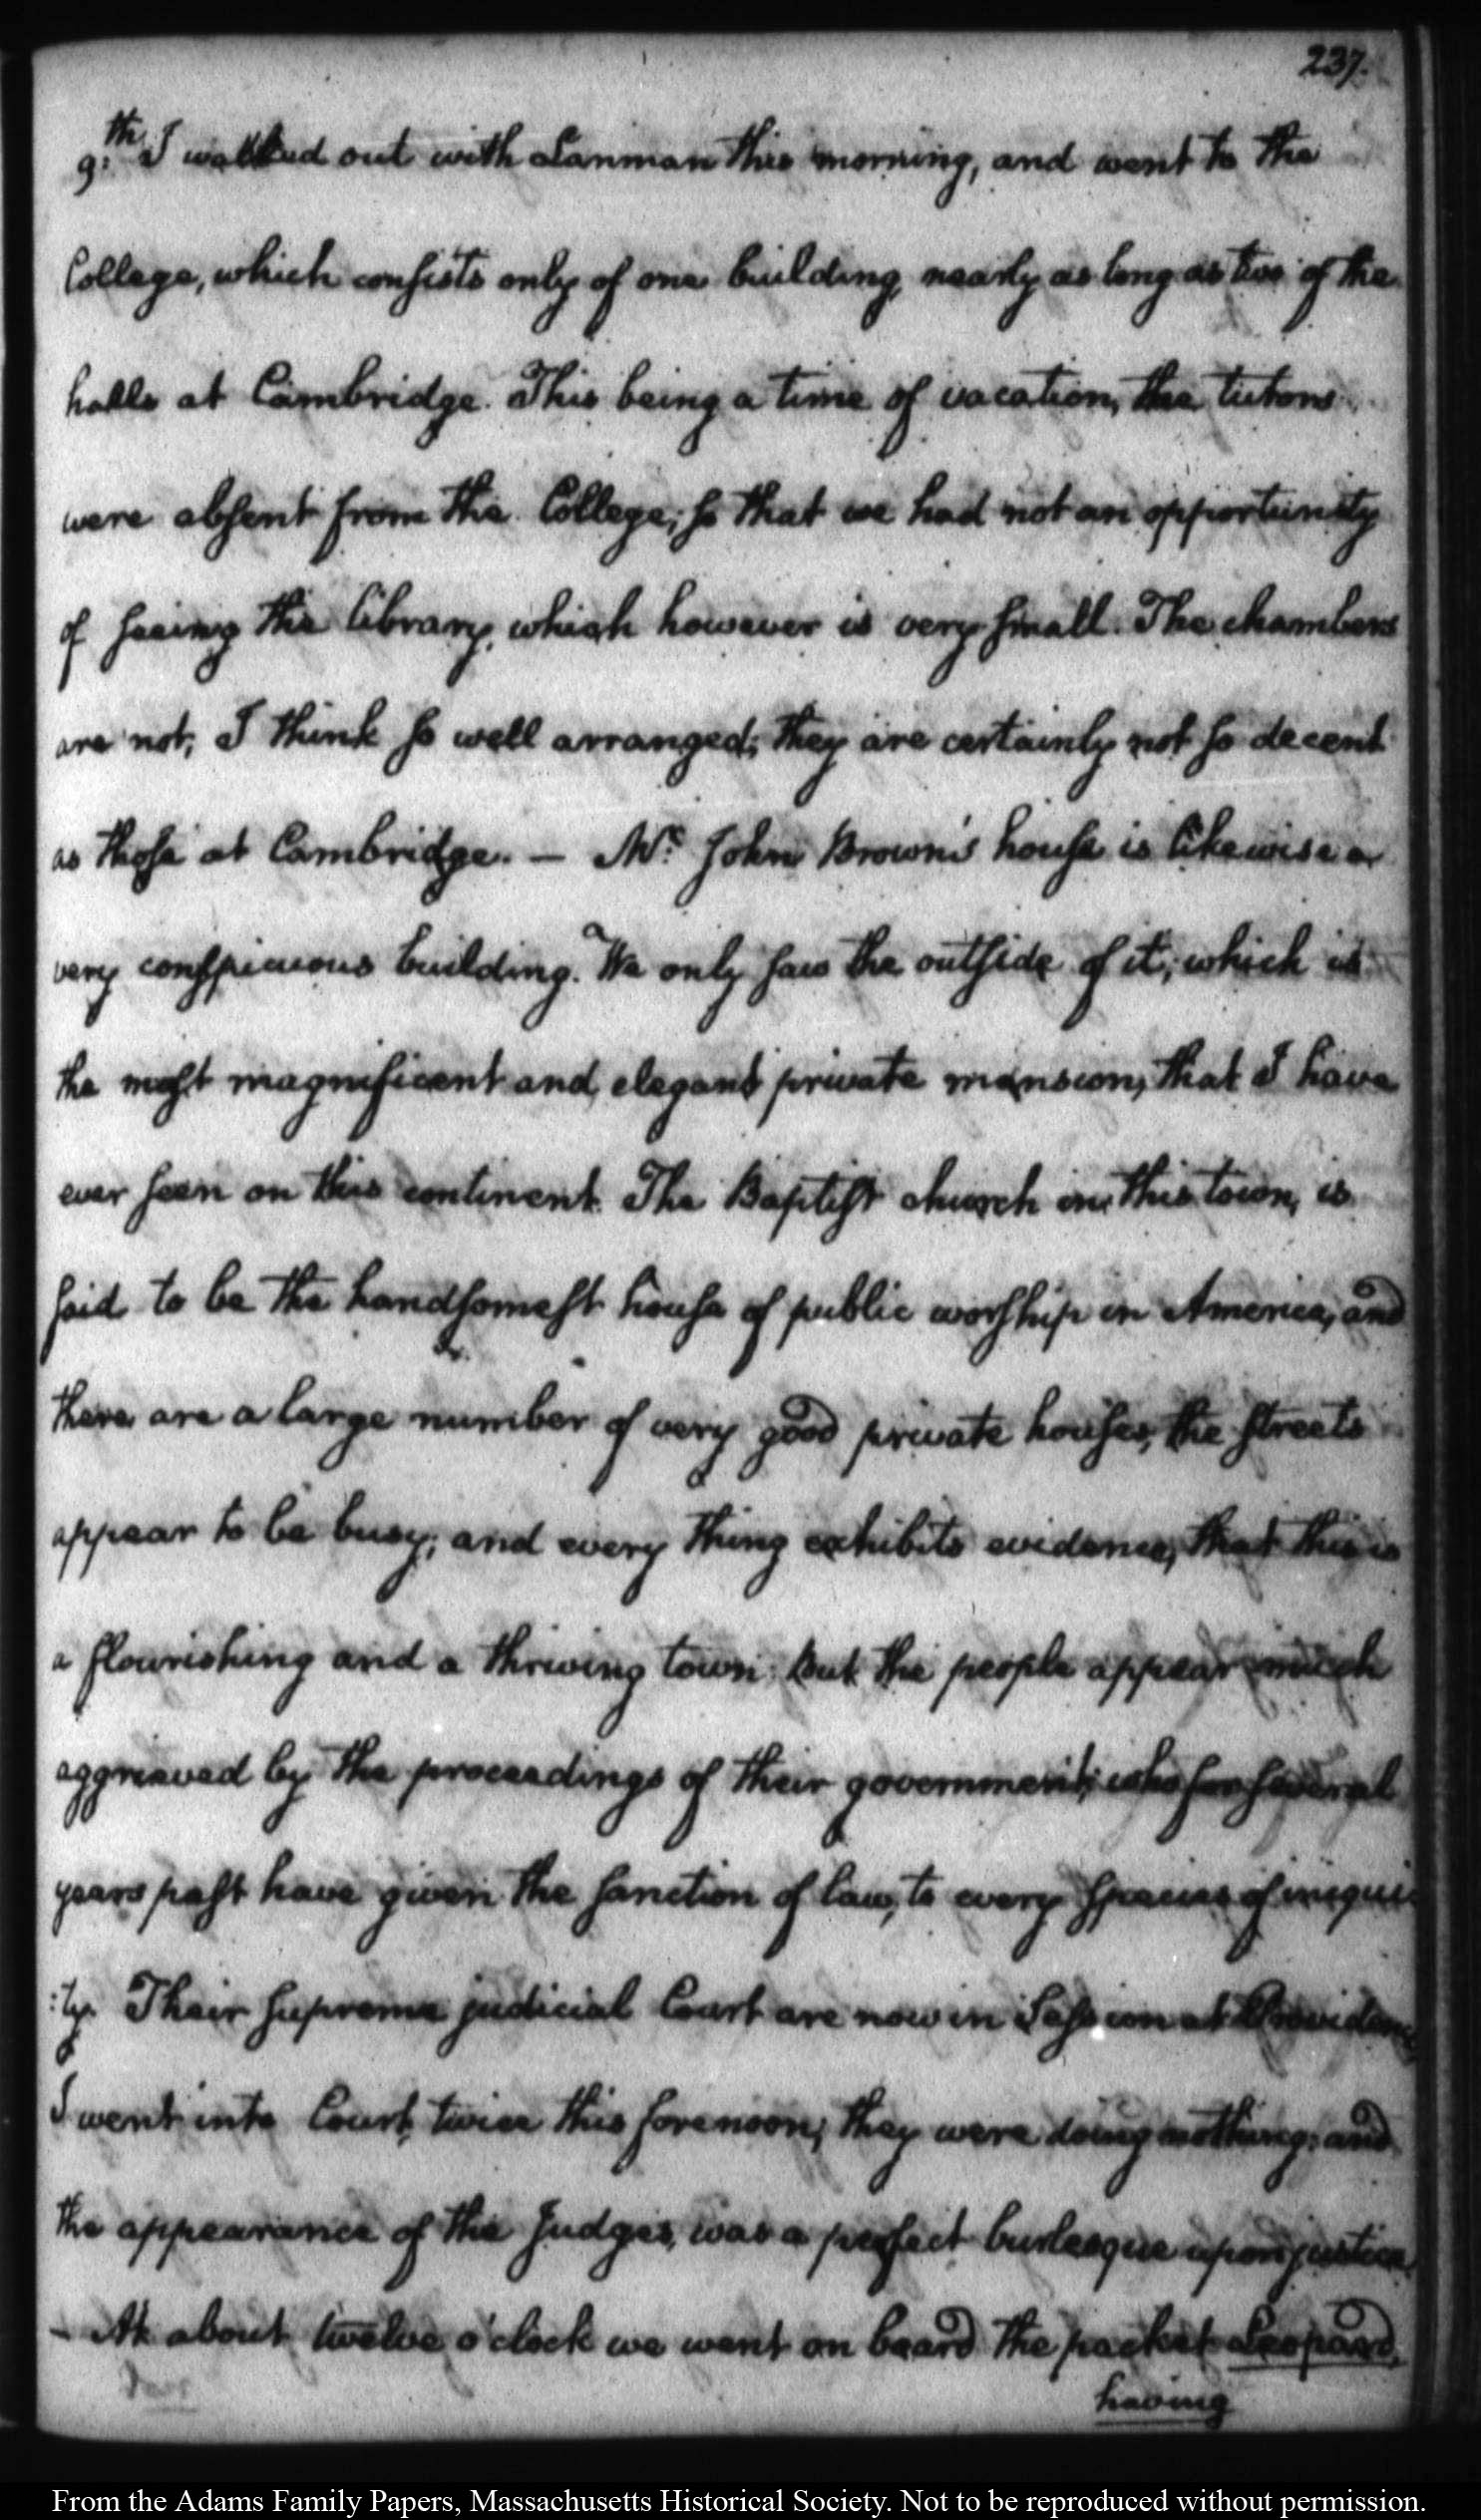 237.
9:th I walked out with Lanman this morning, and went to the
College, which consists only of one building, nearly as long as two of the
halls at Cambridge. This being a time of vacation, the tutors
were absent from the College; so that we had not an opportunity
of seeing the library, which however is very small. The chambers
are not, I think so well arranged; they are certainly not so decent
as those at Cambridge. — Mr. John Brown's house is likewise a
very conspicuous building. We only saw the outside of it, which is
the most magnificent and elegant private mansion, that I have
ever seen on this continent. The Baptist church in this town, is
said to be the handsomest house of public worship in America, and
there are a large number of very good private houses, the streets
appear to be busy, and every thing exhibits evidence, that this is
a flourishing and a thriving town. But the people appear much
aggrieved by the proceedings of their government; who for several
years past have given the sanction of law, to every species of iniqui-
:ty. Their supreme judicial Court are now in Session at Providence
I went into Court, twice this forenoon; they were doing nothing; and
the appearance of the Judges, was a perfect burlesque upon justice
– At about twelve o'clock we went on board the packet Leopard,
having
From the Adams Family Papers, Massachusetts Historical Society. Not to be reproduced without permission.